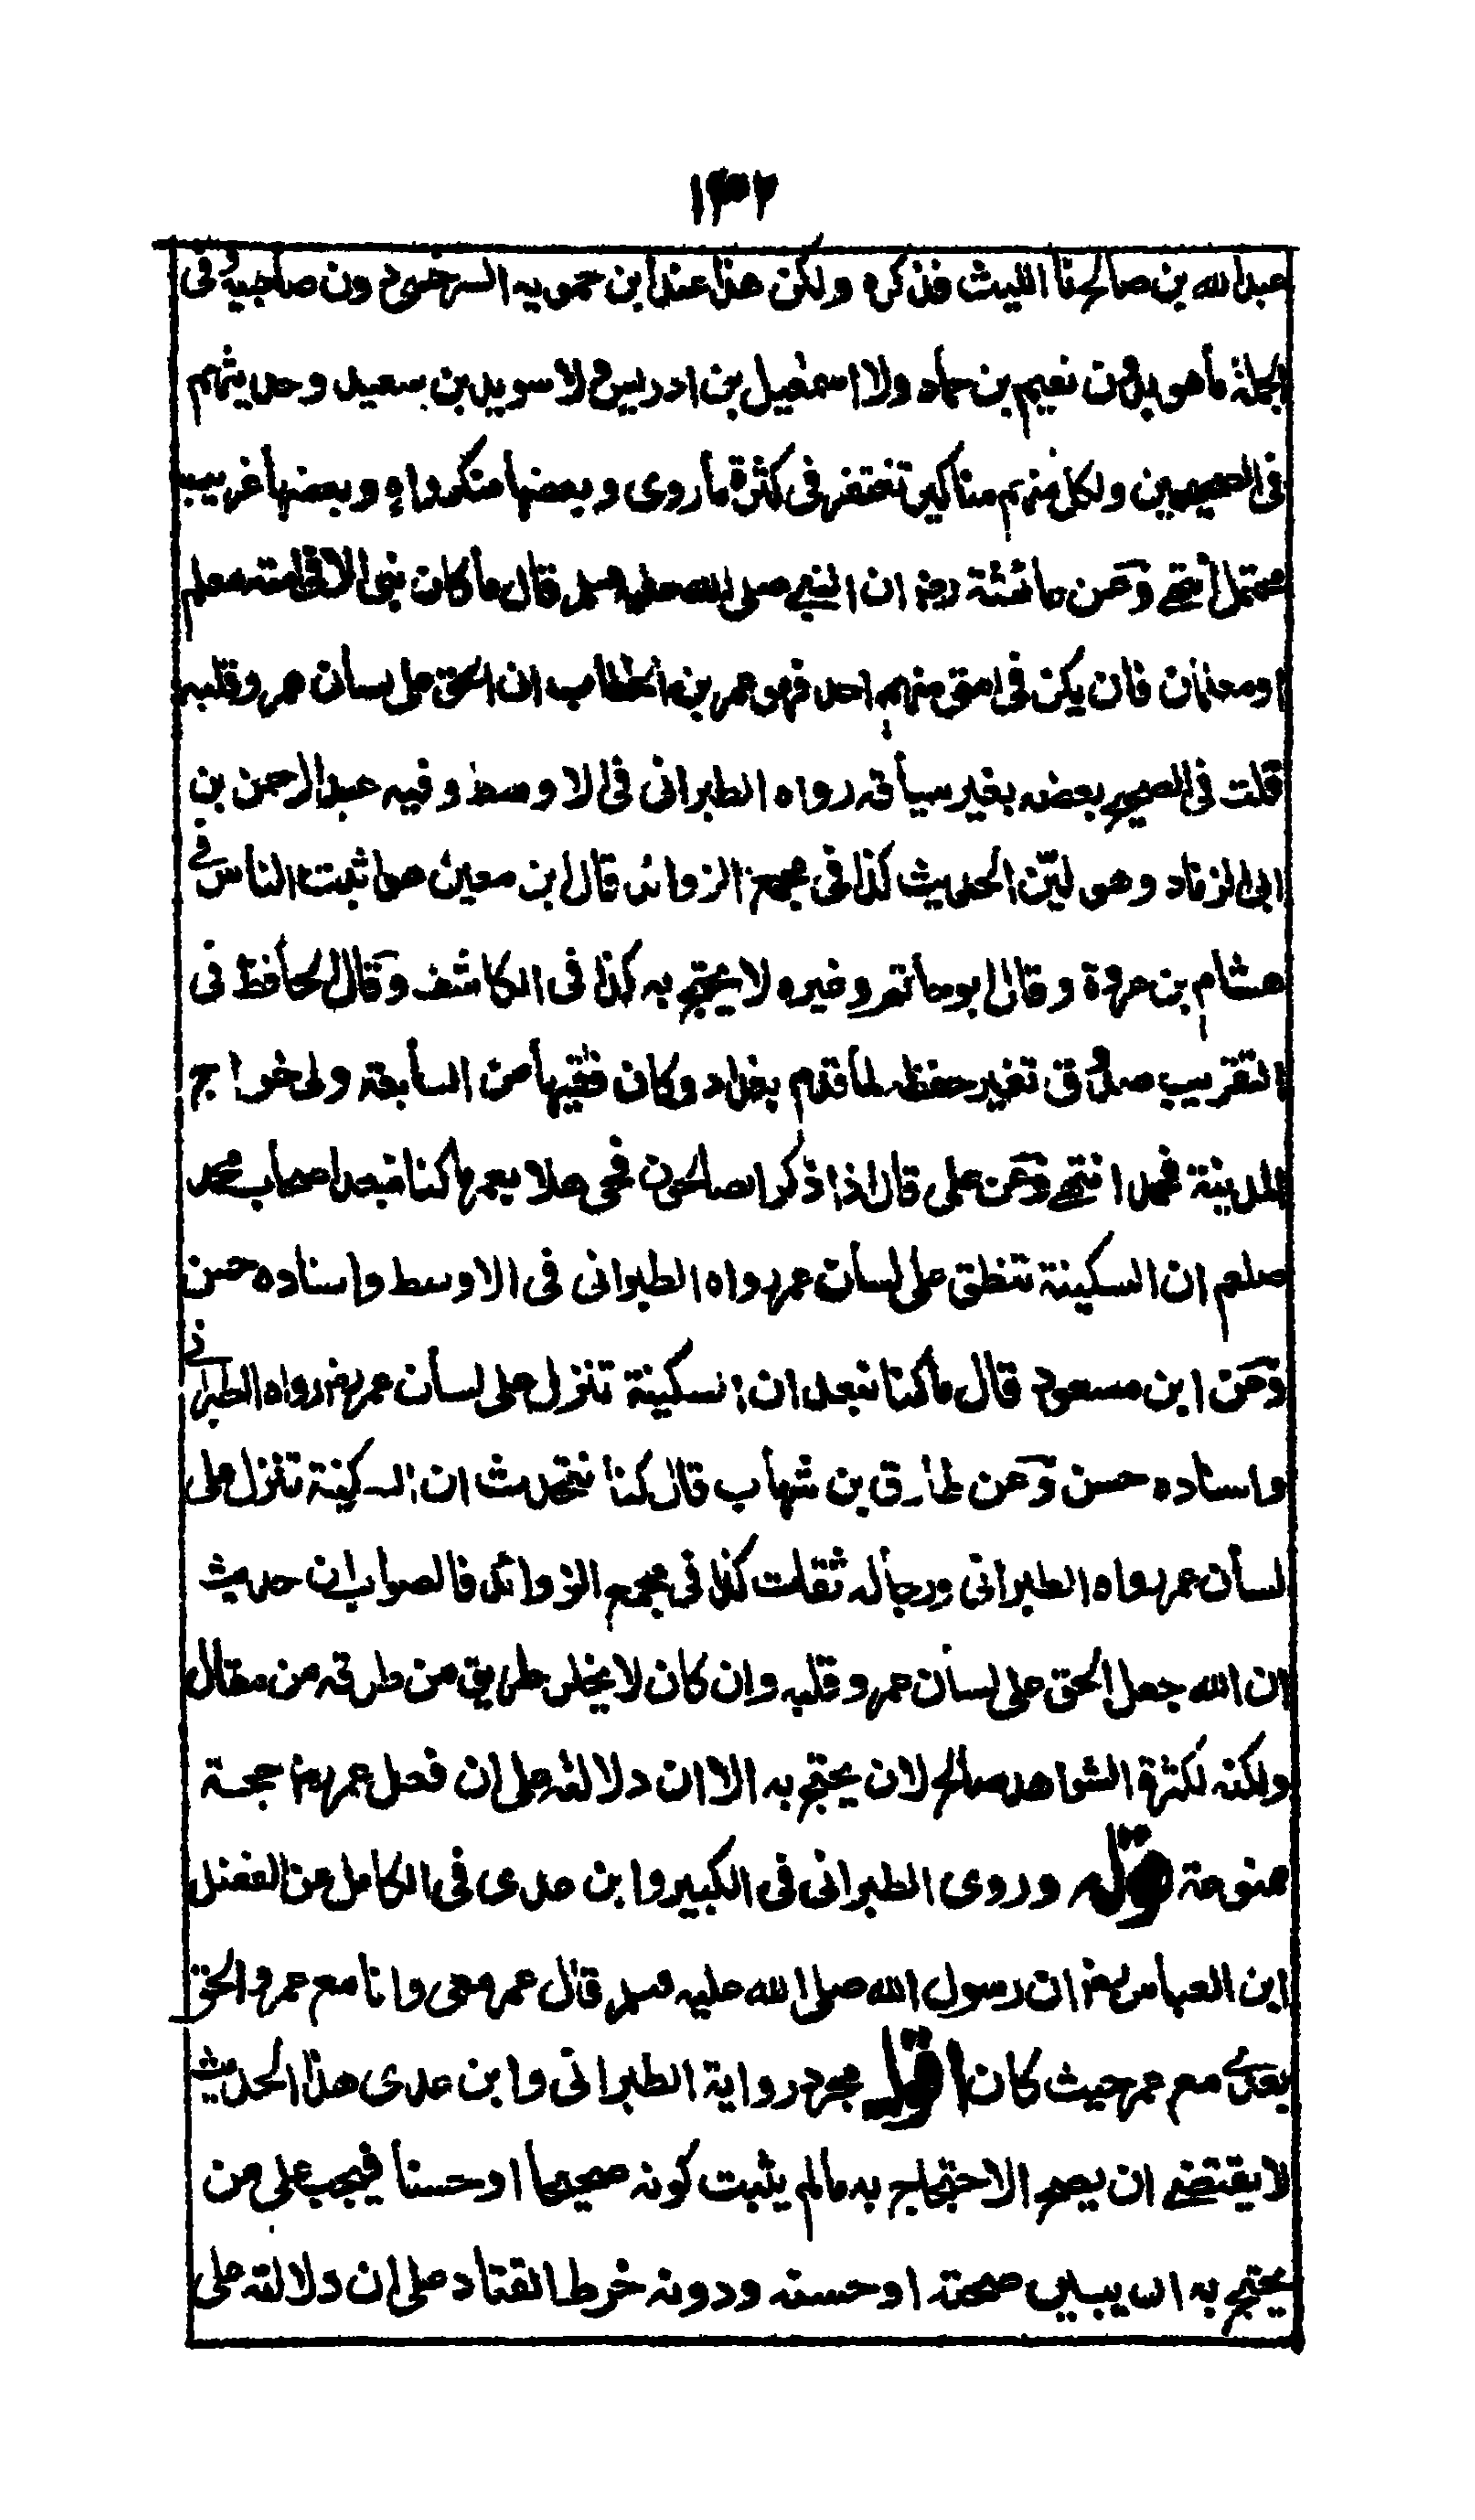 ١٣٢
عبدالله بن صالح نا الليث فذكره ولكن هذا عند ابن حمويه السرخسى دون صاحبيه فى
الجملة ماهو بدون نعيم بن حماد ولا اسمعيل بن ادريس ولا سويد بن سعيد وحديثهم
فى الصحيحين ولكل منهم مناكير تغتفر فى كثرة ماروى وبعضها منكر واه وبعضها غريب
محتمل انتهى وعن عائشة رضـ ان النبى صلى الله عليه وسلم قال ماكان نبى الا فى امته معلم
او معلمان فان يكن فى امتى منهم احد فهو عمر بن الخطاب ان الحق على لسان عمر وقلبه
قلت فى الصحيح بعضه بغير سياقه رواه الطبرانى فى الاوسط وفيه عبدالرحمن بن
ابى الزناد وهو ليّن الحديث كذا فى مجمع الزوائد قال ابن معين هو اثبت الناس فى
هشام بن عروة وقال ابوحاتم وغيره لا يحتج به كذا فى الكاشف وقال الحافظ فى
التقريب صدوق تغير حفظه لما قدم بغداد وكان فقيها من السابعة ولى خراج
المدينة فحمد انتهى وعن على قال اذا ذكر الصالحون فحى هلا بعمر ما كنا نبعد اصحاب محمد
صلعم ان السكينة تنطق على لسان عمر رواه الطبرانى فى الاوسط واسناده حسن
وعن ابن مسعود قال ماكنا نبعد ان السكينة تنزل على لسان عمر رضـ رواه الطبرانى
واسناده حسن وعن طارق بن شهاب قال كنا نتحدث ان السكينة تنزل على
لسان عمر رواه الطبرانى ورجاله ثقات كذا فى مجمع الزوائد فالصواب ان حديث
ان الله جعل الحق على لسان عمر وقلبه وان كان لا يخلو طريق من طرقه من مقال
ولكنه لكثرة الشواهد صالح لان يحتج به الا ان دلالته على ان فعل عمر رضـ حجة
ممنوعة قوله وروى الطبرانى فى الكبير وابن عدى فى الكامل عن الفضل
ابن العباس رضـ ان رسول الله صلى الله عليه وسلم قال عمر معى وانا مع عمر والحق
بعدى مع عمر حيث كان اقول مجرد رواية الطبرانى وابن عدى هذا الحديث
لا يقتضى ان يصح الاحتجاج به مالم يثبت كونه صحيحا او حسنا فيجب على من
يحتج به ان يبين صحته او حسنه ودونه خرط القتاد على ان دلالته على